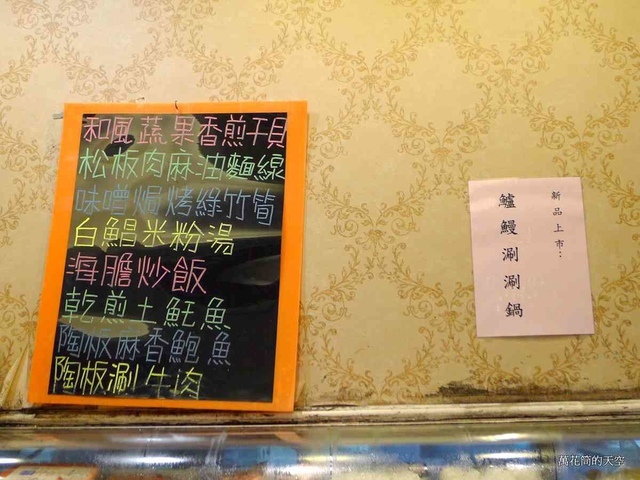 和風蔬果香煎干貝
松板肉麻油麵線
味噌焗烤綠竹筍
白鯧米粉湯
海膽炒飯
乾煎土魠魚
陶板麻香鮑魚
陶板涮牛肉
新品上市：
鱸鰻涮涮鍋
萬花筒的天空